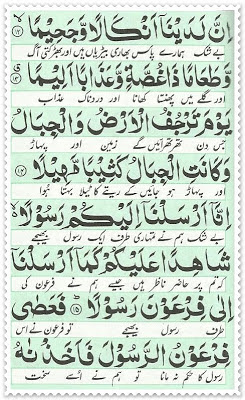 اِنَّ لَدَيْنَاۤ اَنْكَالًا وَّجَحِيْمًا ۙ﴿۱۲﴾
بے شک ہمارے پاس بھاری بیڑیاں ہیں اور بھڑکتی آگ
وَّطَعَامًا ذَا غُصَّةٍ وَّعَذَابًا اَلِيْمًا ﴿۱۳﴾
اور گلے میں پھنستا کھانا اور دردناک عذاب
يَوْمَ تَرْجُفُ الْاَرْضُ وَالْجِبَالُ
جس دن تھرتھرائیں گے زمین اور پہاڑ
وَكَانَتِ الْجِبَالُ كَثِيْبًا مَّهِيْلًا ﴿۱۴﴾
اور پہاڑ ہو جائیں گے ریتے کا ٹیلا بہتا ہوا
اِنَّاۤ اَرْسَلْنَاۤ اِلَيْكُمْ رَسُوْلًا ۙ
بے شک ہم نے تمہاری طرف ایک رسول بھیجے
شَاهِدًا عَلَيْكُمْ كَمَاۤ اَرْسَلْنَاۤ
کہ تم پر حاضر ناظر ہیں جیسے ہم نے فرعون کی
اِلٰى فِرْعَوْنَ رَسُوْلًا ؕ﴿۱۵﴾ فَعَصٰى
طرف رسول بھیجے تو فرعون نے اس
فِرْعَوْنُ الرَّسُوْلَ فَاَخَذْنٰهُ
رسول کا حکم نہ مانا تو ہم نے اسے سخت